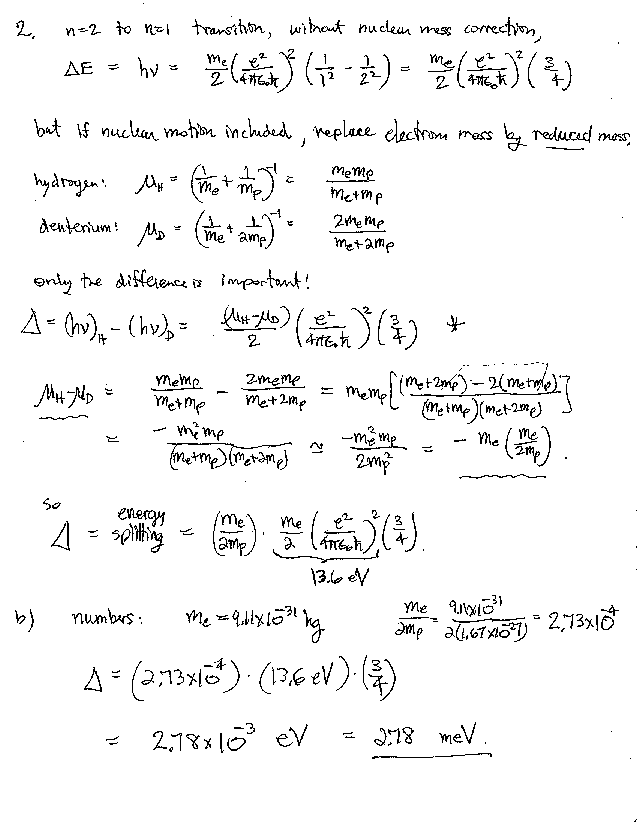 2. n=2 to n=1 transition, without nuclear mass correction,
ΔE = hν = m_e/2 (e²/4πε₀ħ)² (1/1² - 1/2²) = m_e/2 (e²/4πε₀ħ)² (3/4)
but if nuclear motion included, replace electron mass by reduced mass.
hydrogen: μ_H = (1/m_e + 1/m_p)⁻¹ = m_e m_p/(m_e+m_p)
deuterium: μ_D = (1/m_e + 1/2m_p)⁻¹ = 2m_e m_p/(m_e+2m_p)
only the difference is important!
Δ = (hν)_H - (hν)_D = (μ_H-μ_D)/2 (e²/4πε₀ħ)² (3/4) *
μ_H-μ_D = m_e m_p/(m_e+m_p) - 2m_e m_p/(m_e+2m_p) = m_e m_p [((m_e+2m_p) - 2(m_e+m_p))/((m_e+m_p)(m_e+2m_p))]
= -m_e² m_p/((m_e+m_p)(m_e+2m_p)) ≃ -m_e² m_p/2m_p² = -m_e (m_e/2m_p).
so
Δ = energy splitting = (m_e/2m_p) · m_e/2 (e²/4πε₀ħ)² (3/4).
13.6 eV
b) numbers: m_e = 9.11x10⁻³¹ kg m_e/2m_p = 9.11x10⁻³¹/2(1.67x10⁻²⁷) = 2.73x10⁻⁴
Δ = (2.73x10⁻⁴) · (13.6 eV) · (3/4)
= 2.78x10⁻³ eV = 2.78 meV.